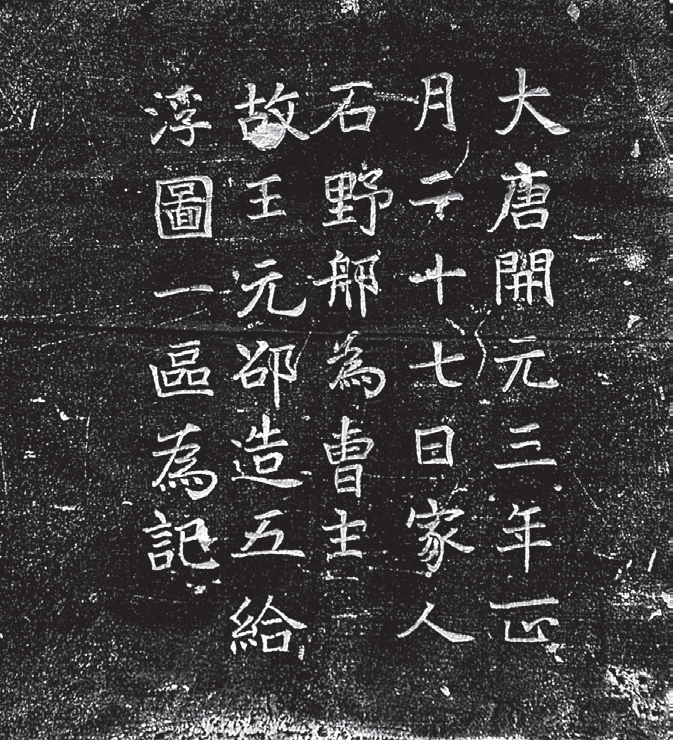 大唐開元三年正
月二十七日家人
石野郍為曹主
故王元邵造五給
浮圖一區為記